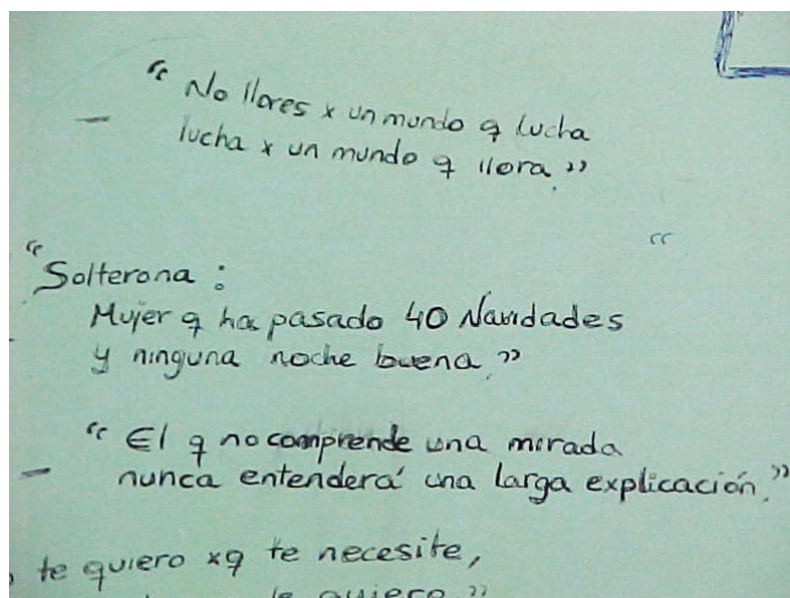 “ No llores x un mundo q lucha
lucha x un mundo q llora.”
“
“Solterona :
Mujer q ha pasado 40 Navidades
y ninguna noche buena.”
“ El q no comprende una mirada
nunca entenderá una larga explicación.”
te quiero xq te necesite,
quiero”